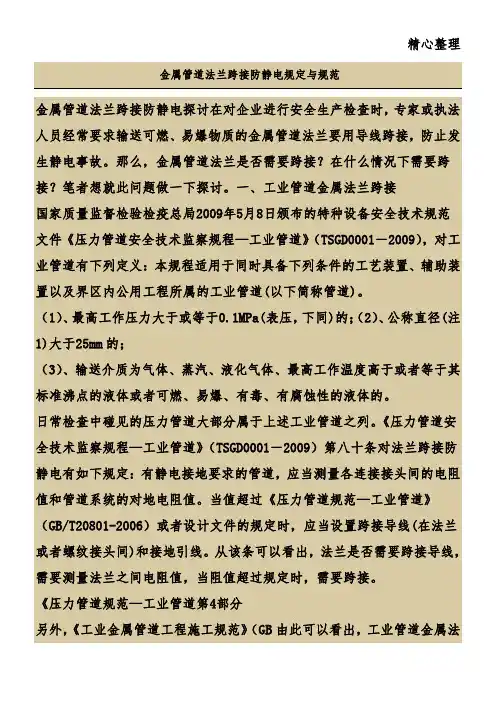 精心整理
金属管道法兰跨接防静电规定与规范
金属管道法兰跨接防静电探讨在对企业进行安全生产检查时，专家或执法
人员经常要求输送可燃、易爆物质的金属管道法兰要用导线跨接，防止发
生静电事故。那么，金属管道法兰是否需要跨接？在什么情况下需要跨
接？笔者想就此问题做一下探讨。一、工业管道金属法兰跨接
国家质量监督检验检疫总局2009年5月8日颁布的特种设备安全技术规范
文件《压力管道安全技术监察规程—工业管道》（TSGD0001－2009），对工
业管道有下列定义：本规程适用于同时具备下列条件的工艺装置、辅助装
置以及界区内公用工程所属的工业管道(以下简称管道)。
（1）、最高工作压力大于或等于0.1MPa(表压，下同)的；（2）、公称直径(注
1)大于25mm的；
（3）、输送介质为气体、蒸汽、液化气体、最高工作温度高于或者等于其
标准沸点的液体或者可燃、易爆、有毒、有腐蚀性的液体的。
日常检查中碰见的压力管道大部分属于上述工业管道之列。《压力管道安
全技术监察规程—工业管道》（TSGD0001－2009）第八十条对法兰跨接防
静电有如下规定：有静电接地要求的管道，应当测量各连接接头间的电阻
值和管道系统的对地电阻值。当值超过《压力管道规范—工业管道》
（GB/T20801-2006）或者设计文件的规定时，应当设置跨接导线(在法兰
或者螺纹接头间)和接地引线。从该条可以看出，法兰是否需要跨接导线，
需要测量法兰之间电阻值，当阻值超过规定时，需要跨接。
《压力管道规范—工业管道第4部分
另外，《工业金属管道工程施工规范》（GB由此可以看出，工业管道金属法